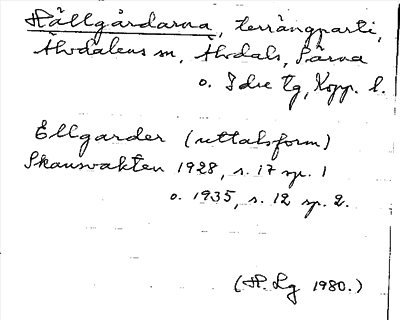 Hällgårdarna, terrängparti,
Älvdalens sn, Älvdals, Särna
o. Idre tg, Kopp. l.
Ellgarder (uttalsform)
Skansvakten 1928, s. 17 sp. 1
o. 1935, s. 12 sp. 2.
(H. Lg 1980.)